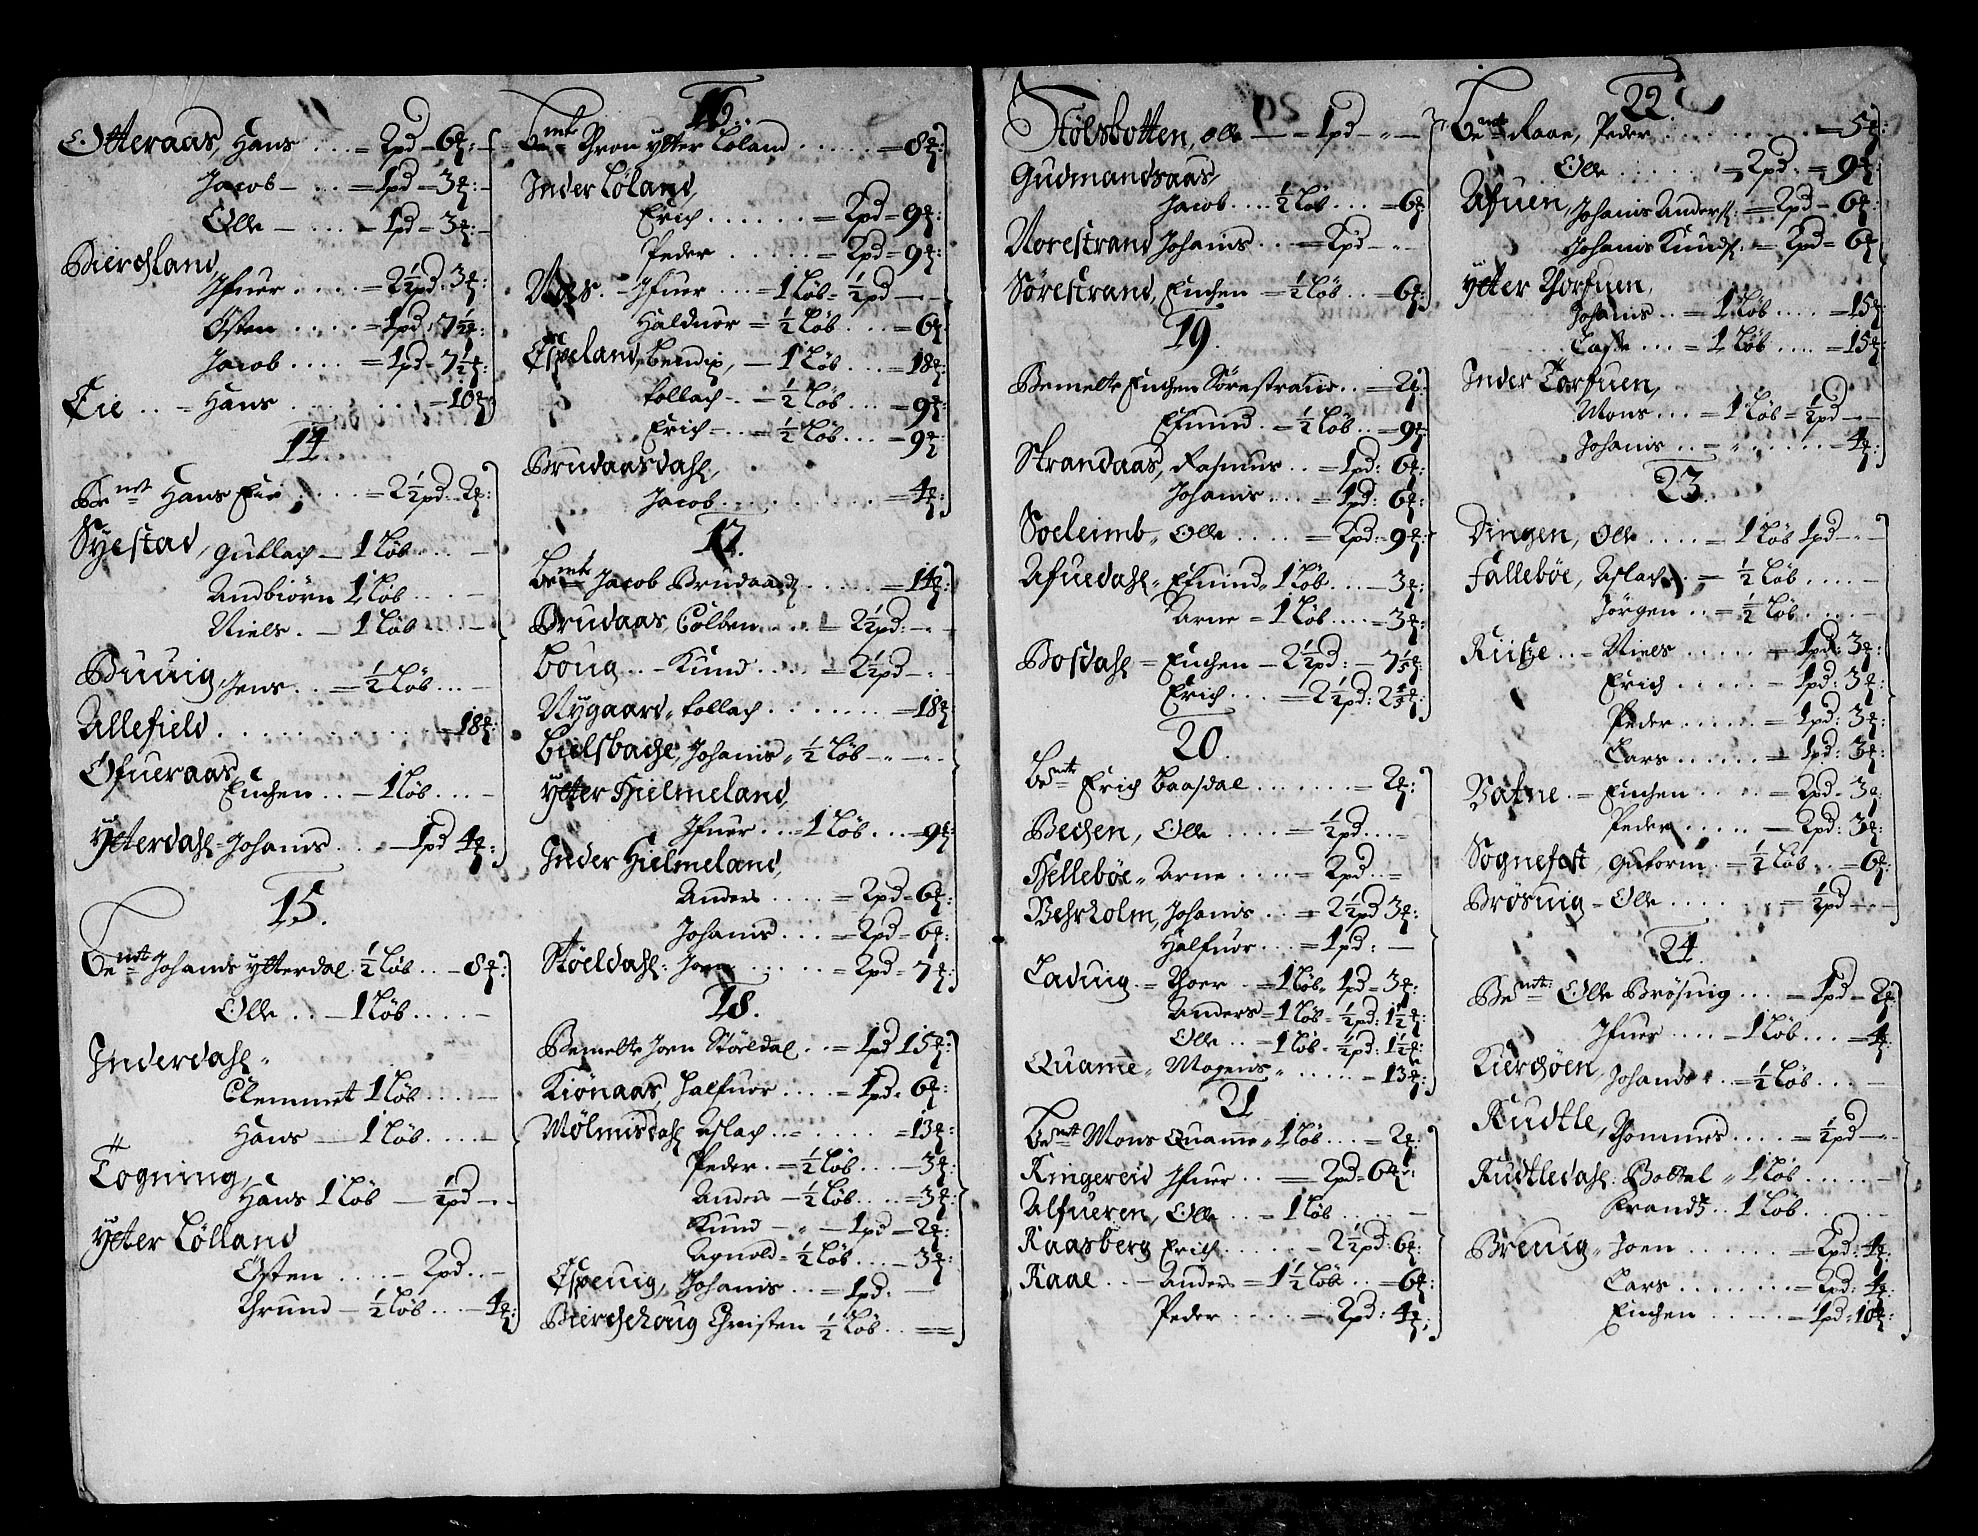 Otteraas, Hans ... = 2pd = 6 ₰: -
Jacob - ... = 1pd = 3 ₰: -
Olle - ... - 1pd = 3 ₰: -
Bierchland,
Ifuer .... = 2½pd: 3 ₰:
Osten .... = 1pd: 7½ ₰:
Jacob .... = 1pd = 7½ ₰:
Eie .. = Hans ........ = 10 ₰
14.
Be nte Hans Eie .... = 2½pd.. 2 ₰:
Syestad, Gullach - 1 Løb ... -
Andbiörn 1 Løb .... -
Niels. - 1 Løb .... -
Buuig, Jens .. = ½ Løb ... -
Allefield .......... = 18 ₰:
Ofueraas,
Einchen .. - 1 Løb .... -
Ytterdahl = Johanis ... - 1pd 4 ₰:
15.
Be nte Johanis Ytterdal. ½ Løb .. - 8 ₰:
Olle .. - 1 Løb .... -
Inderdahl =
Clemmet 1 Løb .... -
Hans - 1 Løb .... -
Togning,
Hans 1 Løb - ½pd - -
Ytter Lölland
Osten .... - 2pd .. -
Thrund - ½ Løb .. - 4 ₰:
16.
Be nte Thron Ytter Löland ..... = 8 ₰:
Inder Löland,
Erich ...... = 2pd = 9 ₰:
Peder ..... = 2pd = 9 ₰:
Næs. - Ifuer ... = 1 Løb = ½pd - -
Halduor = ½ Løb ... = 6 ₰
Espeland, Bendix, - 1 Løb ... = 18 ₰:
Tollach - - ½ Løb ... = 9 ₰:
Erich - .. = ½ Løb ... = 9 ₰
Brudaasdahl,
Jacob ........ = 4 ₰:
17.
Be nte Jacob Brudaasd. ..... = 14 ₰:
Brudaas, Colben .... = 2½pd: - -
Boug ... Knud .... = 2½pd - -
Nygaard = Tollach ....... = 18 ₰:
Bielsbache, Johanis = ½ Løb - - -
Ytter Hielmeland,
Ifuer ... = 1 Løb ... = 9 ₰:
Inder Hielmeland,
Anders .... = 2pd = 6 ₰:
Johanis ... = 2pd = 6 ₰:
Stöeldahl: Joen ..... = 2pd = 7 ₰:
18.
Bemelte Joen Stöeldal .. = 1pd 15 ₰:
Kiönaas, Halfuor .... = 1pd = 6 ₰:
Mölmisdahl Aslach ....... = 13 ₰:
Peder. = ½ Løb ... = 3 ₰:
Anders - ½ Løb .... = 3 ₰:
Knud - - - 1pd = 2 ₰:
Agnold = ½ Løb ... = 3 ₰:
Espeuig, Johanis .. = 1pd. -
Bierchehoug Christen ½ Løb .. = =
Stölsbotten, Olle - = 1pd - - -
Gudmandsaas,
Jacob .... ½ Løb ... = 6 ₰
Norestrand Johanis ... = 2pd - -
Sörestrand, Einchen = ½ Løb .. = 6 ₰:
19.
Bemelte Einchen Sörestrand .. = 2 ₰:
Efuind. - ½ Løb .. = 9 ₰:
Strandaas, Rasmus .. = 1pd: 6 ₰:
Johanis .... = 1pd: 6 ₰:
Soeleimb - Olle .... = 2pd: 9 ₰:
Afuedahl = Efuind = 1 Løb ... - 3 ₰:
Arne = 1 Løb .... = 3 ₰:
Bosdahl = Einchen - 2½pd: - 7½ ₰:
Erich ... = 2½pd: 2½ ₰:
20.
Be nte Erich Baasdal ...... = 2 ₰:
Bechen, Olle ..... = ½pd ... =
Helleböe = Arne .... = 2pd .. =
Behrholm, Johanis .. = 2½pd 3 ₰:
Halfuor ... = 1pd: -
Laduig. = Thoer .. = 1 Løb = 1pd = 3 ₰:
Anders = 1 Løb = ½pd: 1½ ₰:
Olle .. - 1 Løb = ½pd: 1½ ₰:
Quame = Mogens ...... = 13 ₰:
21
Be nte Mons Quame = 1 Løb ... = 2 ₰:
Ringereid Ifuer .. = 2pd = 6 ₰:
Alfueren, Olle .. = 1 Løb .... -
Raasberg Erich ..... = 2½pd: 6 ₰:
Raae .. - Anders = 1½ Løb .. = 6 ₰:
Peder ..... = 2pd: 4 ₰:
22
Be nte Raae, Peder ........ = 5 ₰:
Olle ...... = 2pd. = 9 ₰:
Afuen, Johanis Anders: = 2pd = 6 ₰:
Johanis Knuds. = 2pd = 6 ₰
Ytter Thorfuen,
Johanis .. = 1 Løb .... = 15 ₰
Lasse ... = 1 Løb .... = 15 ₰:
Inder Torfuen,
Mons ... = 1 Løb = ½pd - -
Johanis ... = " ....... = 4 ₰:
23.
Dingen, Olle .... = 1 Løb 1pd - -
Fallebøe, Aslach .. = ½ Løb .... -
Jörgen .. = ½ Løb ..... -
Riise .. - Niels ...... = 1pd: 3 ₰:
Erich ...... = 1pd: 3 ₰:
Peder ...... = 1pd: 3 ₰:
Lars ...... = 1pd: 3 ₰:
Vatne. = Einchen ..... = 2pd = 3 ₰
Peder ...... - 2pd: 3 ₰:
Sognefest, Guttorm. = ½ Løb .. = 6 ₰:
Brösuig = Olle ...... = ½pd - -
24.
Be nte: Olle Brösuig .... = 1pd = 2 ₰:
Ifuer .... - 1 Løb ... = 4 ₰
Kierchöen, Johanis .. = ½ Løb ... -
Rudtle, Thommes .... = ½pd - -
Rudtledahl. Bottel = 1 Løb ...... -
Brandt .. 1 Løb .... -
Breuig = Joen ....... = 2pd: 4 ₰:
Lars ........ = 2pd: 4 ₰:
Einchen ..... = 1pd: 10 ₰: